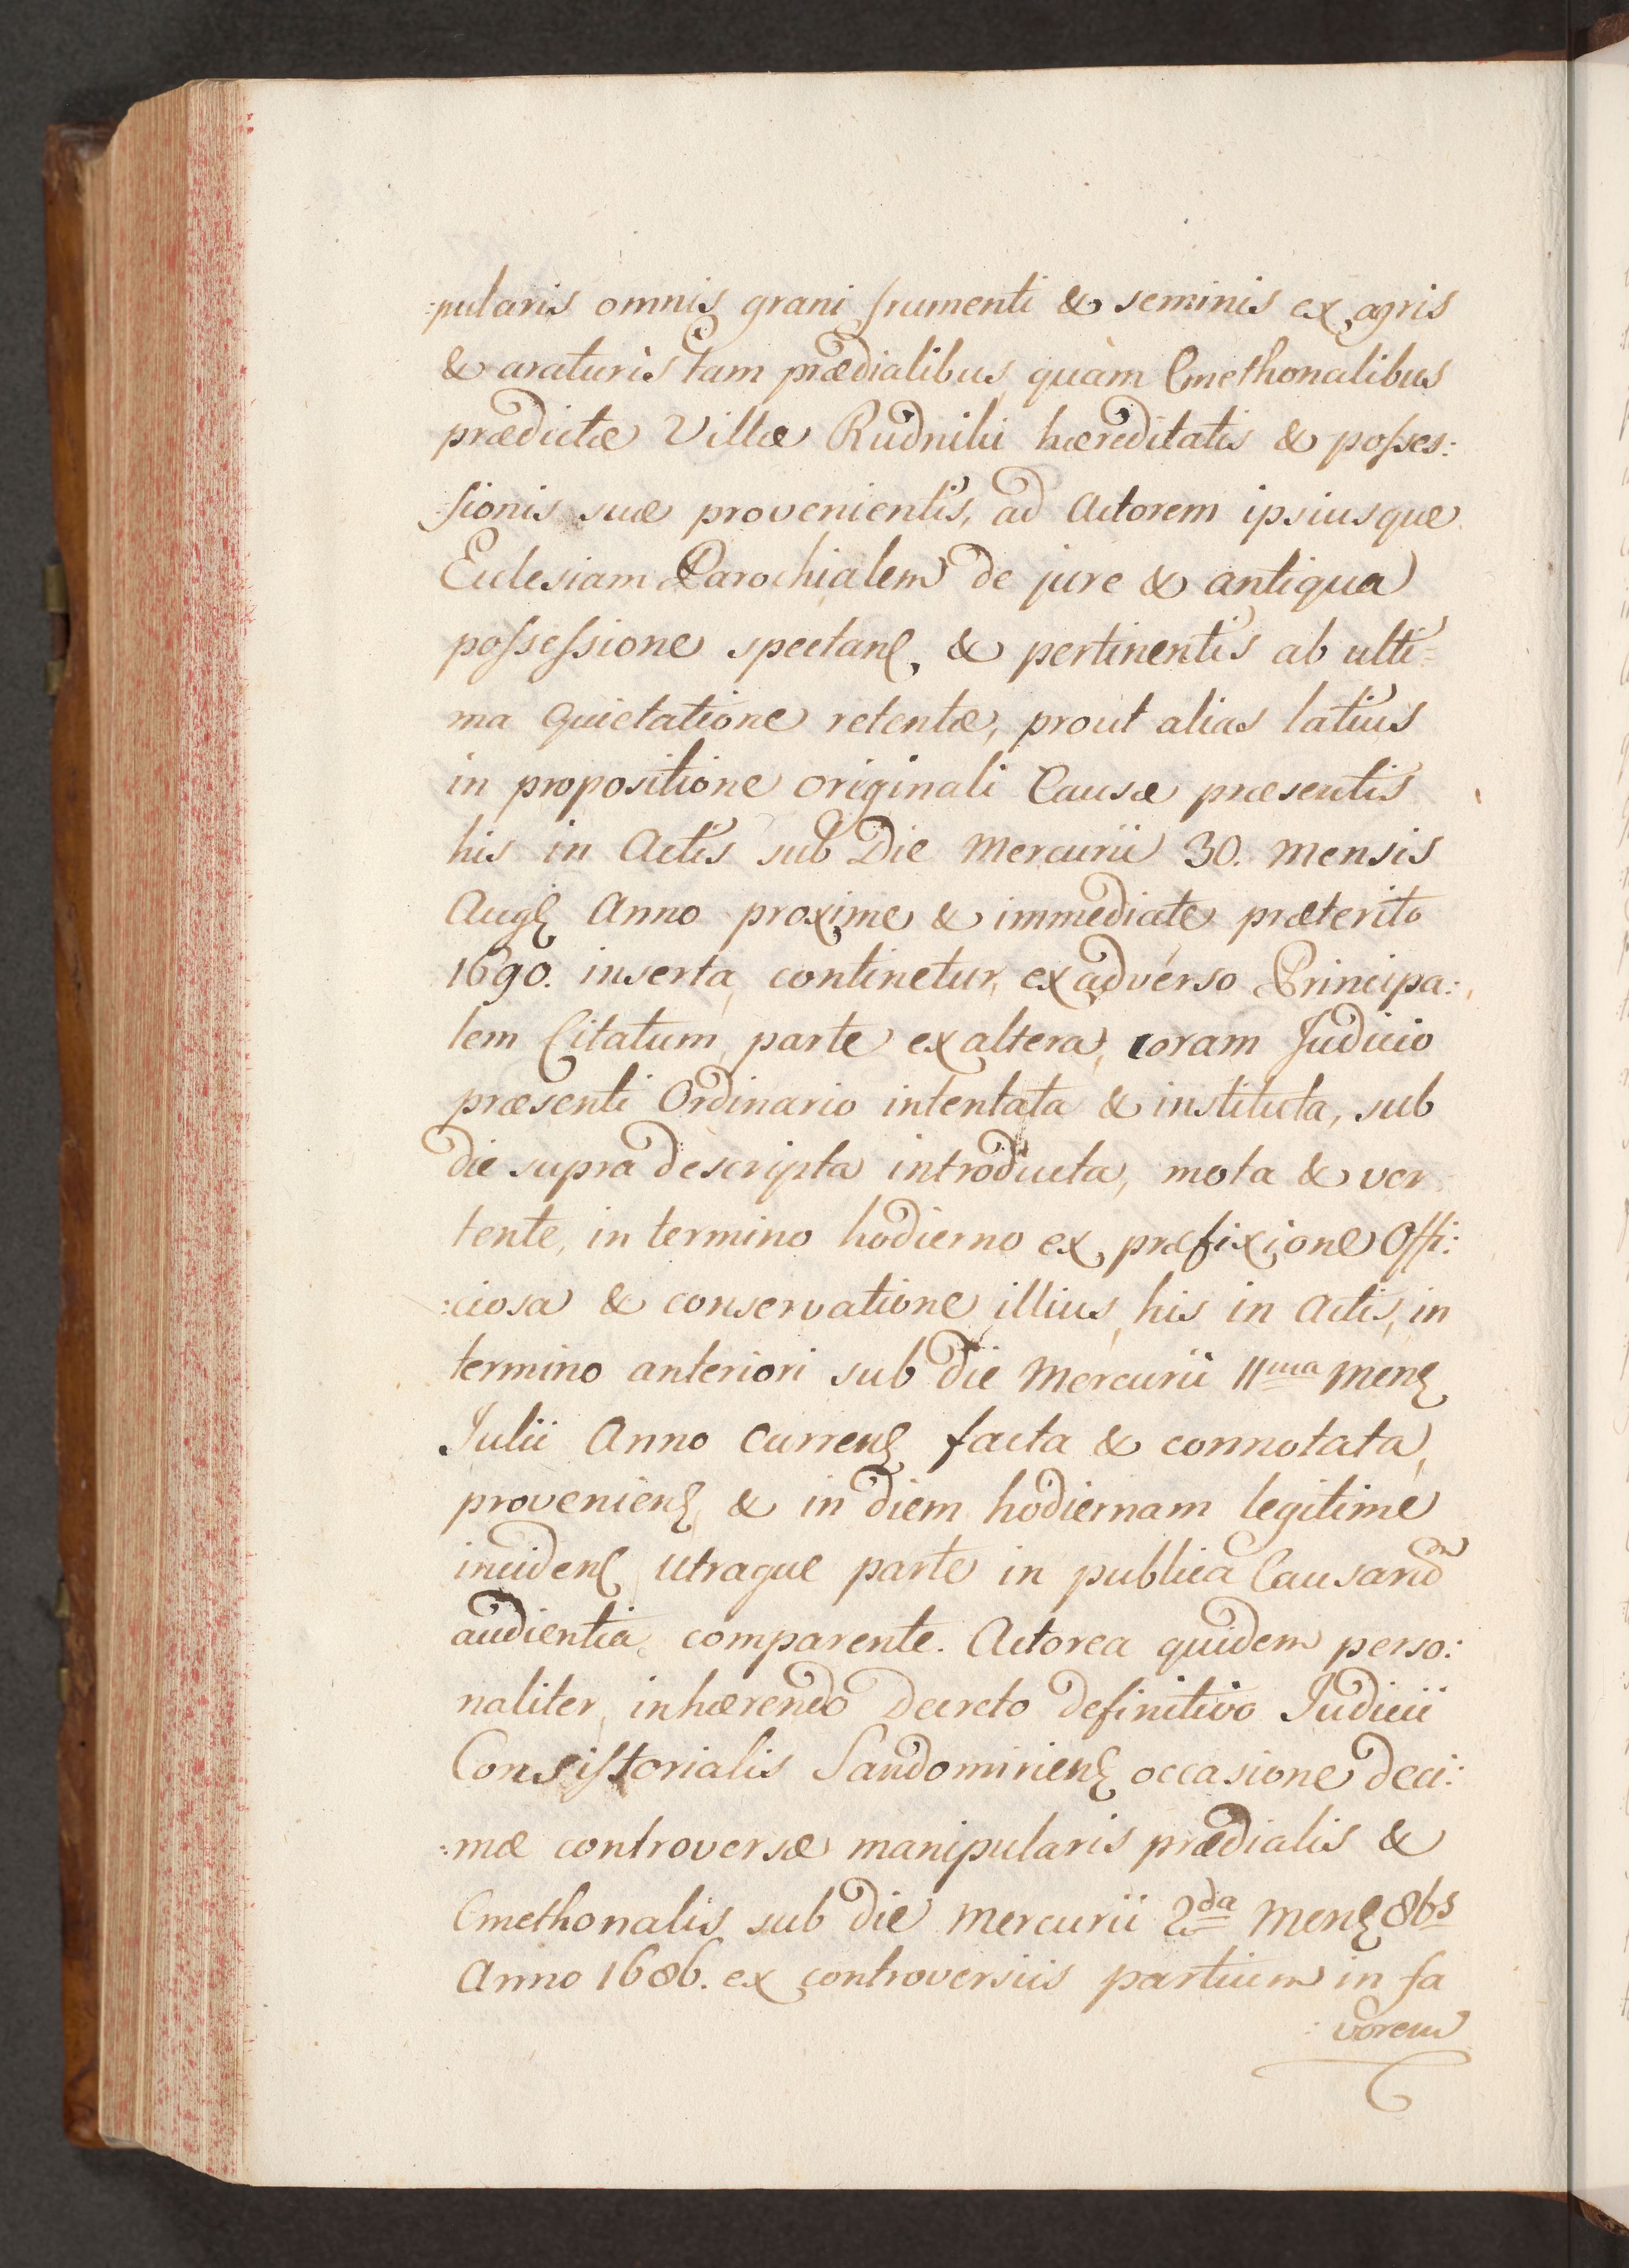 :pularis omnis grani frumenti & seminis ex agris
& araturis tam prædialibus quàm Cmethonalibus
prædictæ Villæ Rudniki hæreditatis & posses:
:sionis suæ provenientis, ad Actorem ipsiusque
Ecclesiam Parochialem de jure & antiqua
possessione spectanẽ, & pertinentis ab ulti=
ma quietatione retentæ, prout alias latius
in propositione originali Causæ præsentis
his in Actis sub Die Mercurii 30. mensis
Augẽ Anno proxime & immediate præterito
1690. inserta continetur, ex adverso Principa:
lem Citatum, parte ex altera, coram Judicio
præsenti Ordinario intentata & instituta, sub
die supra descripta introducta, mota & ver
tente, in termino hodierno ex præfixione Offi:
:ciosa & conservatione illius, his in Actis, in
termino anteriori sub die Mercurii 11ma Menẽ
Julii Anno Currenẽ facta & connotata,
provenienẽ & in diem hodiernam legitime
incidenẽ utraque parte in publica Causand
audientia comparente. Actorea quidem perso:
naliter, inhærendo Decreto definitivo Judicii
Consistorialis Sandomirienẽ occasione deci:
:mæ controversæ manipularis prædialis &
Cmethonalis sub die Mercurii 2da Menẽ 8bs
Anno 1686. ex controversiis partium in fa
:vorem